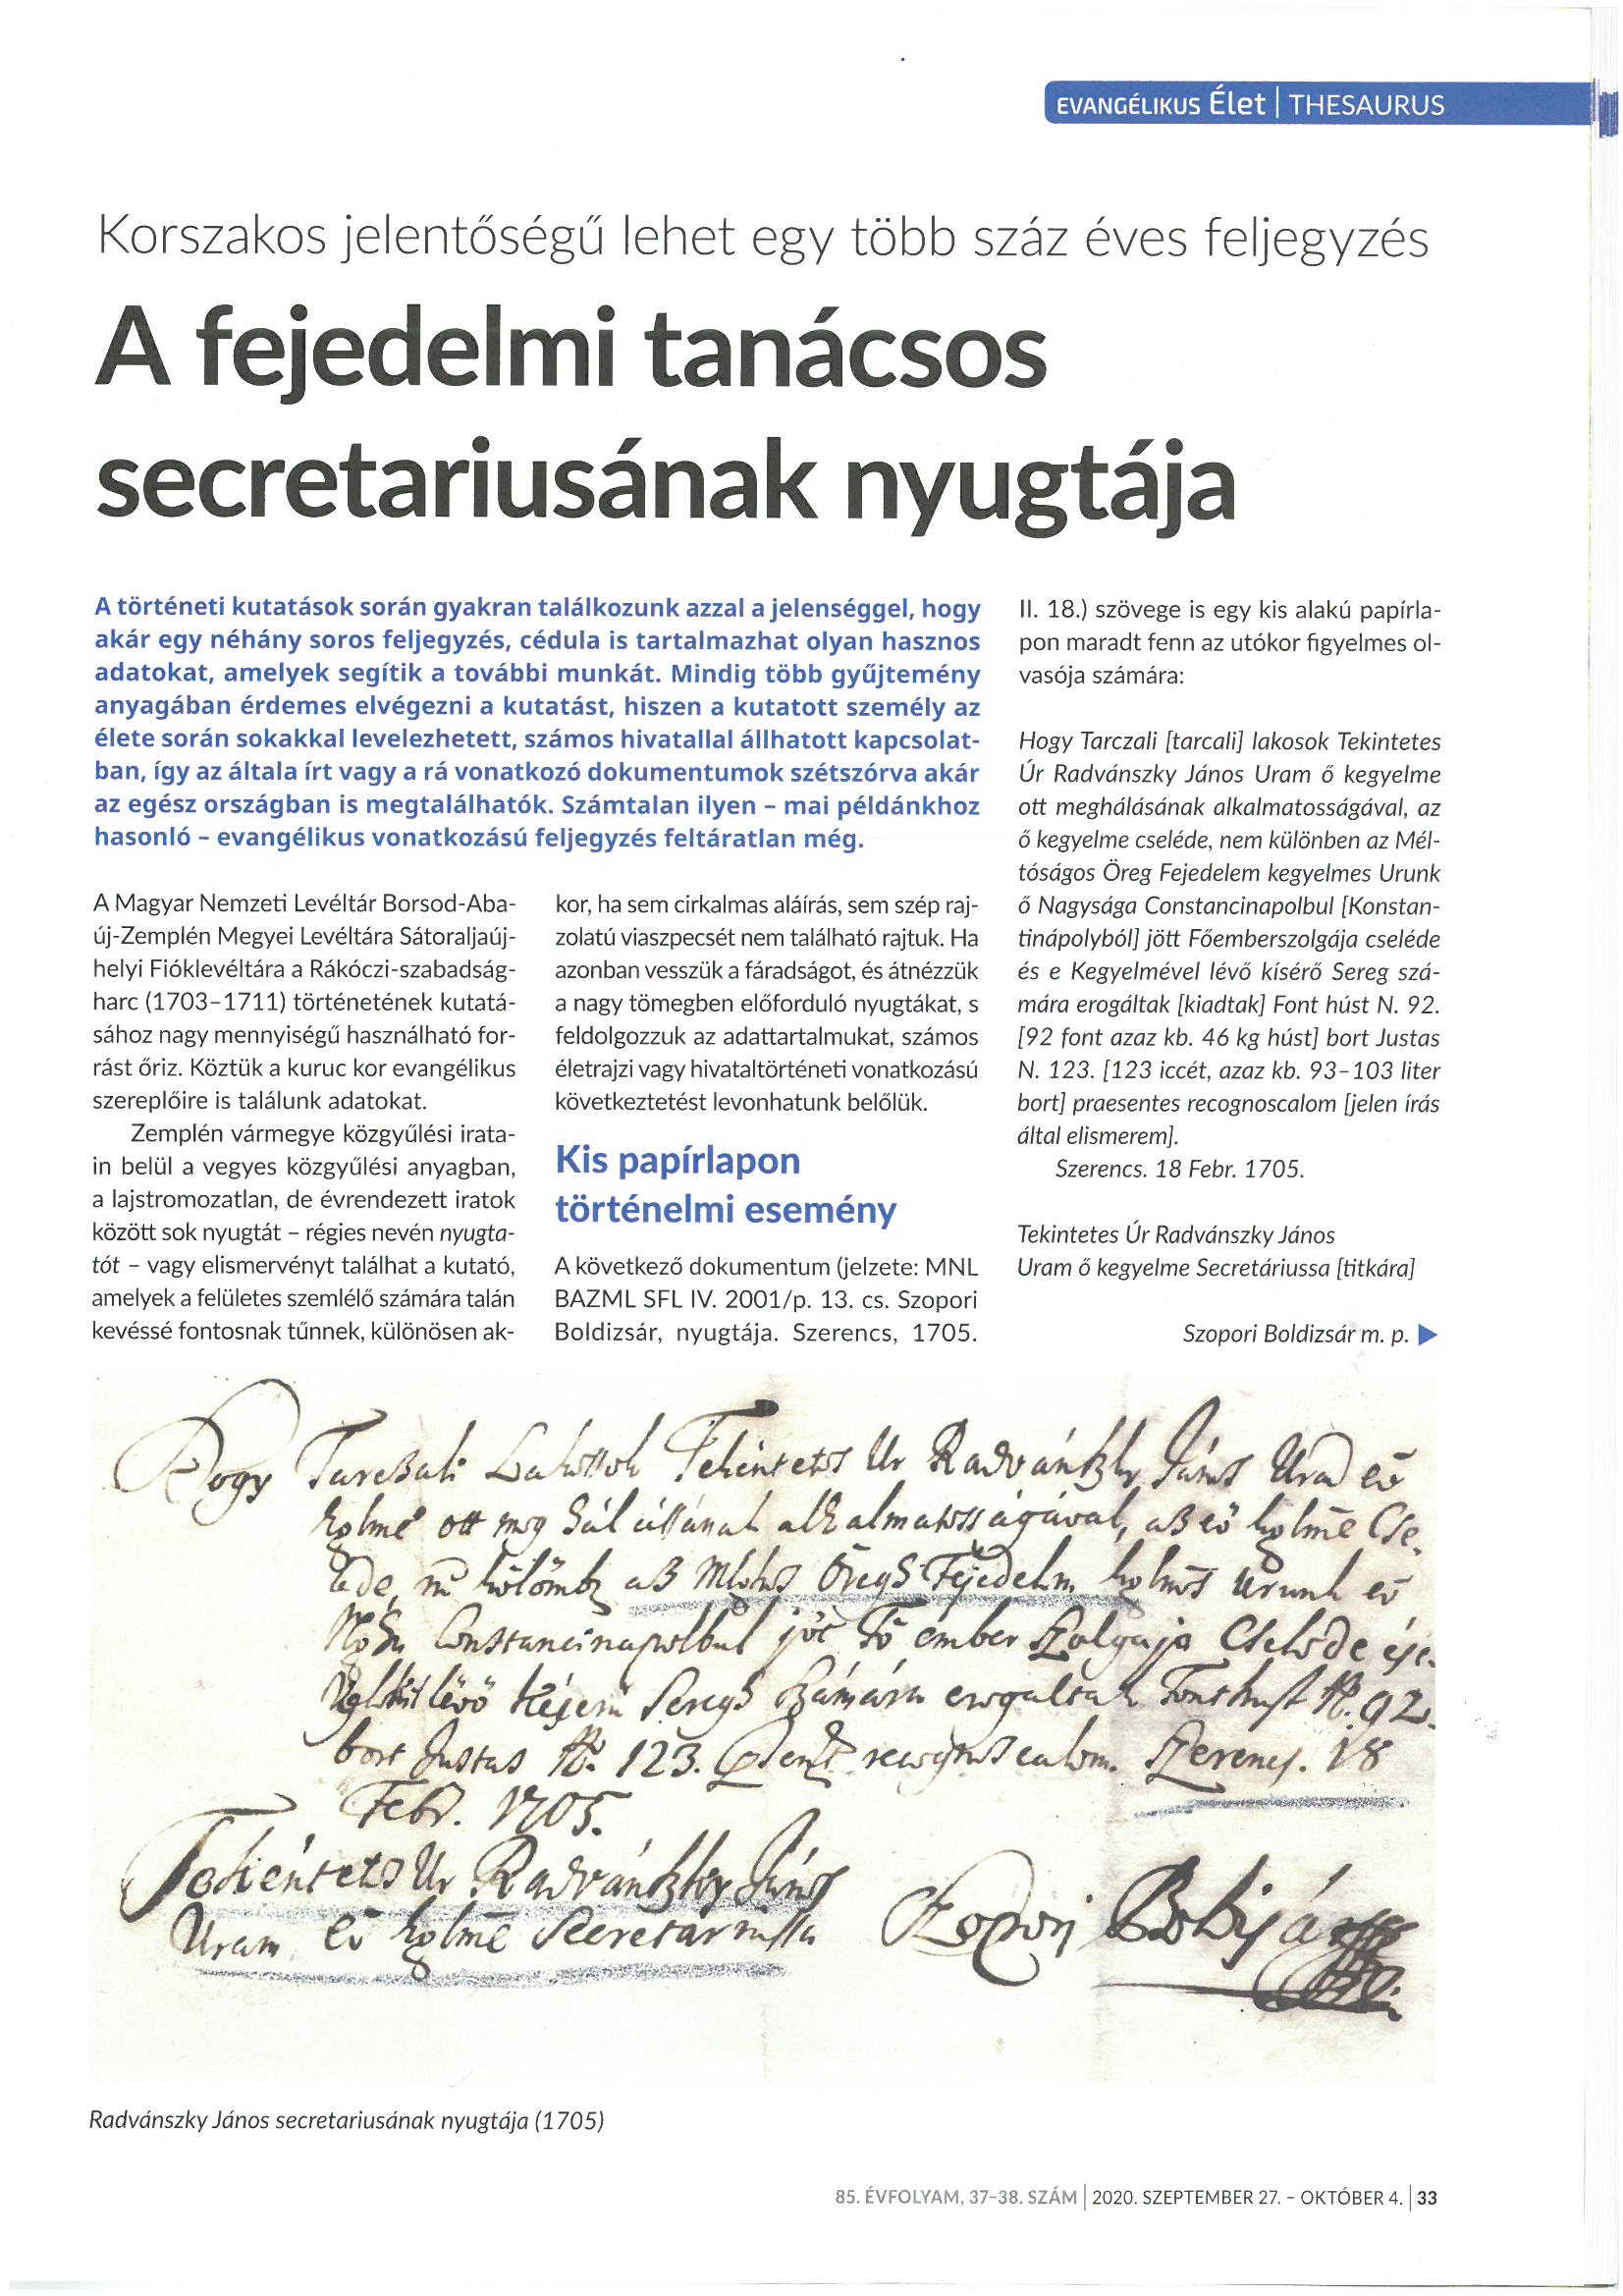 EVANGÉLIKUS Élet | THESAURUS
Korszakos jelentőségű lehet egy több száz éves feljegyzés
A fejedelmi tanácsos
secretariusának nyugtája
A történeti kutatások során gyakran találkozunk azzal a jelenséggel, hogy
akár egy néhány soros feljegyzés, cédula is tartalmazhat olyan hasznos
adatokat, amelyek segítik a további munkát. Mindig több gyűjtemény
anyagában érdemes elvégezni a kutatást, hiszen a kutatott személy az
élete során sokakkal levelezhetett, számos hivatallal állhatott kapcsolat-
ban, így az általa írt vagy a rá vonatkozó dokumentumok szétszórva akár
az egész országban is megtalálhatók. Számtalan ilyen – mai példánkhoz
hasonló – evangélikus vonatkozású feljegyzés feltáratlan még.
A Magyar Nemzeti Levéltár Borsod-Aba-
új-Zemplén Megyei Levéltára Sátoraljaúj-
helyi Fióklevéltára a Rákóczi-szabadság-
harc (1703–1711) történetének kutatá-
sához nagy mennyiségű használható for-
rást őriz. Köztük a kuruc kor evangélikus
szereplőire is találunk adatokat.
Zemplén vármegye közgyűlési irata-
in belül a vegyes közgyűlési anyagban,
a lajstromozatlan, de évrendezett iratok
között sok nyugtát – régies nevén nyugta-
tót – vagy elismervényt találhat a kutató,
amelyek a felületes szemlélő számára talán
kevéssé fontosnak tűnnek, különösen ak-
kor, ha sem cirkalmas aláírás, sem szép raj-
zolatú viaszpecsét nem található rajtuk. Ha
azonban vesszük a fáradságot, és átnézzük
a nagy tömegben előforduló nyugtákat, s
feldolgozzuk az adattartalmukat, számos
életrajzi vagy hivataltörténeti vonatkozású
következtetést levonhatunk belőlük.
Kis papírlapon
történelmi esemény
A következő dokumentum (jelzete: MNL
BAZML SFL IV. 2001/p. 13. cs. Szopori
Boldizsár, nyugtája. Szerencs, 1705.
II. 18.) szövege is egy kis alakú papírla-
pon maradt fenn az utókor figyelmes ol-
vasója számára:
Hogy Tarczali [tarcali] lakosok Tekintetes
Úr Radvánszky János Uram ő kegyelme
ott meghálásának alkalmatosságával, az
ő kegyelme cseléde, nem különben az Mél-
tóságos Öreg Fejedelem kegyelmes Urunk
ő Nagysága Constancinapolbul [Konstan-
tinápolyból] jött Főemberszolgája cseléde
és e Kegyelmével lévő kísérő Sereg szá-
mára erogáltak [kiadtak] Font húst N. 92.
[92 font azaz kb. 46 kg húst] bort Justas
N. 123. [123 iccét, azaz kb. 93–103 liter
bort] praesentes recognoscalom [jelen írás
által elismerem].
Szerencs. 18 Febr. 1705.
Tekintetes Úr Radvánszky János
Uram ő kegyelme Secretáriussa [titkára]
Szopori Boldizsár m. p.
Hogy Tarczali Lakossok Tekintetes Ur Radvánszky János Urā eő
ott meg
Öregh Fejedelm Urunk eő
Constancinapolbul jöt Fő ember Szolgaja Cselede
lévő Seregh Számára erogaltak Font hust N. 92.
bort Justas N. 123. recognoscalom. Szerencs. 18
Febr. 1705.
Tekéntetes Ur Radvánszky János
Uram eő kglmē Secretariussa
Szopori Boldisár
Radvánszky János secretariusának nyugtája (1705)
85. ÉVFOLYAM, 37–38. SZÁM | 2020. SZEPTEMBER 27. – OKTÓBER 4. | 33